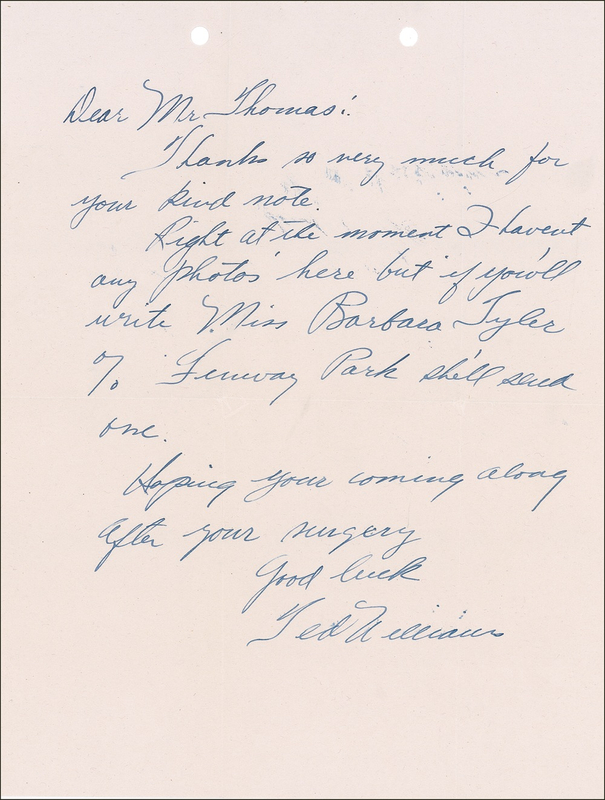 Dear Mr Thomas:
Thanks so very much for
your kind note.
Right at the moment I havent
any photos here but if you'll
write Miss Barbara Tyler
% Fenway Park she'll send
one.
Hoping your coming along
after your surgery
Good luck
Ted Williams